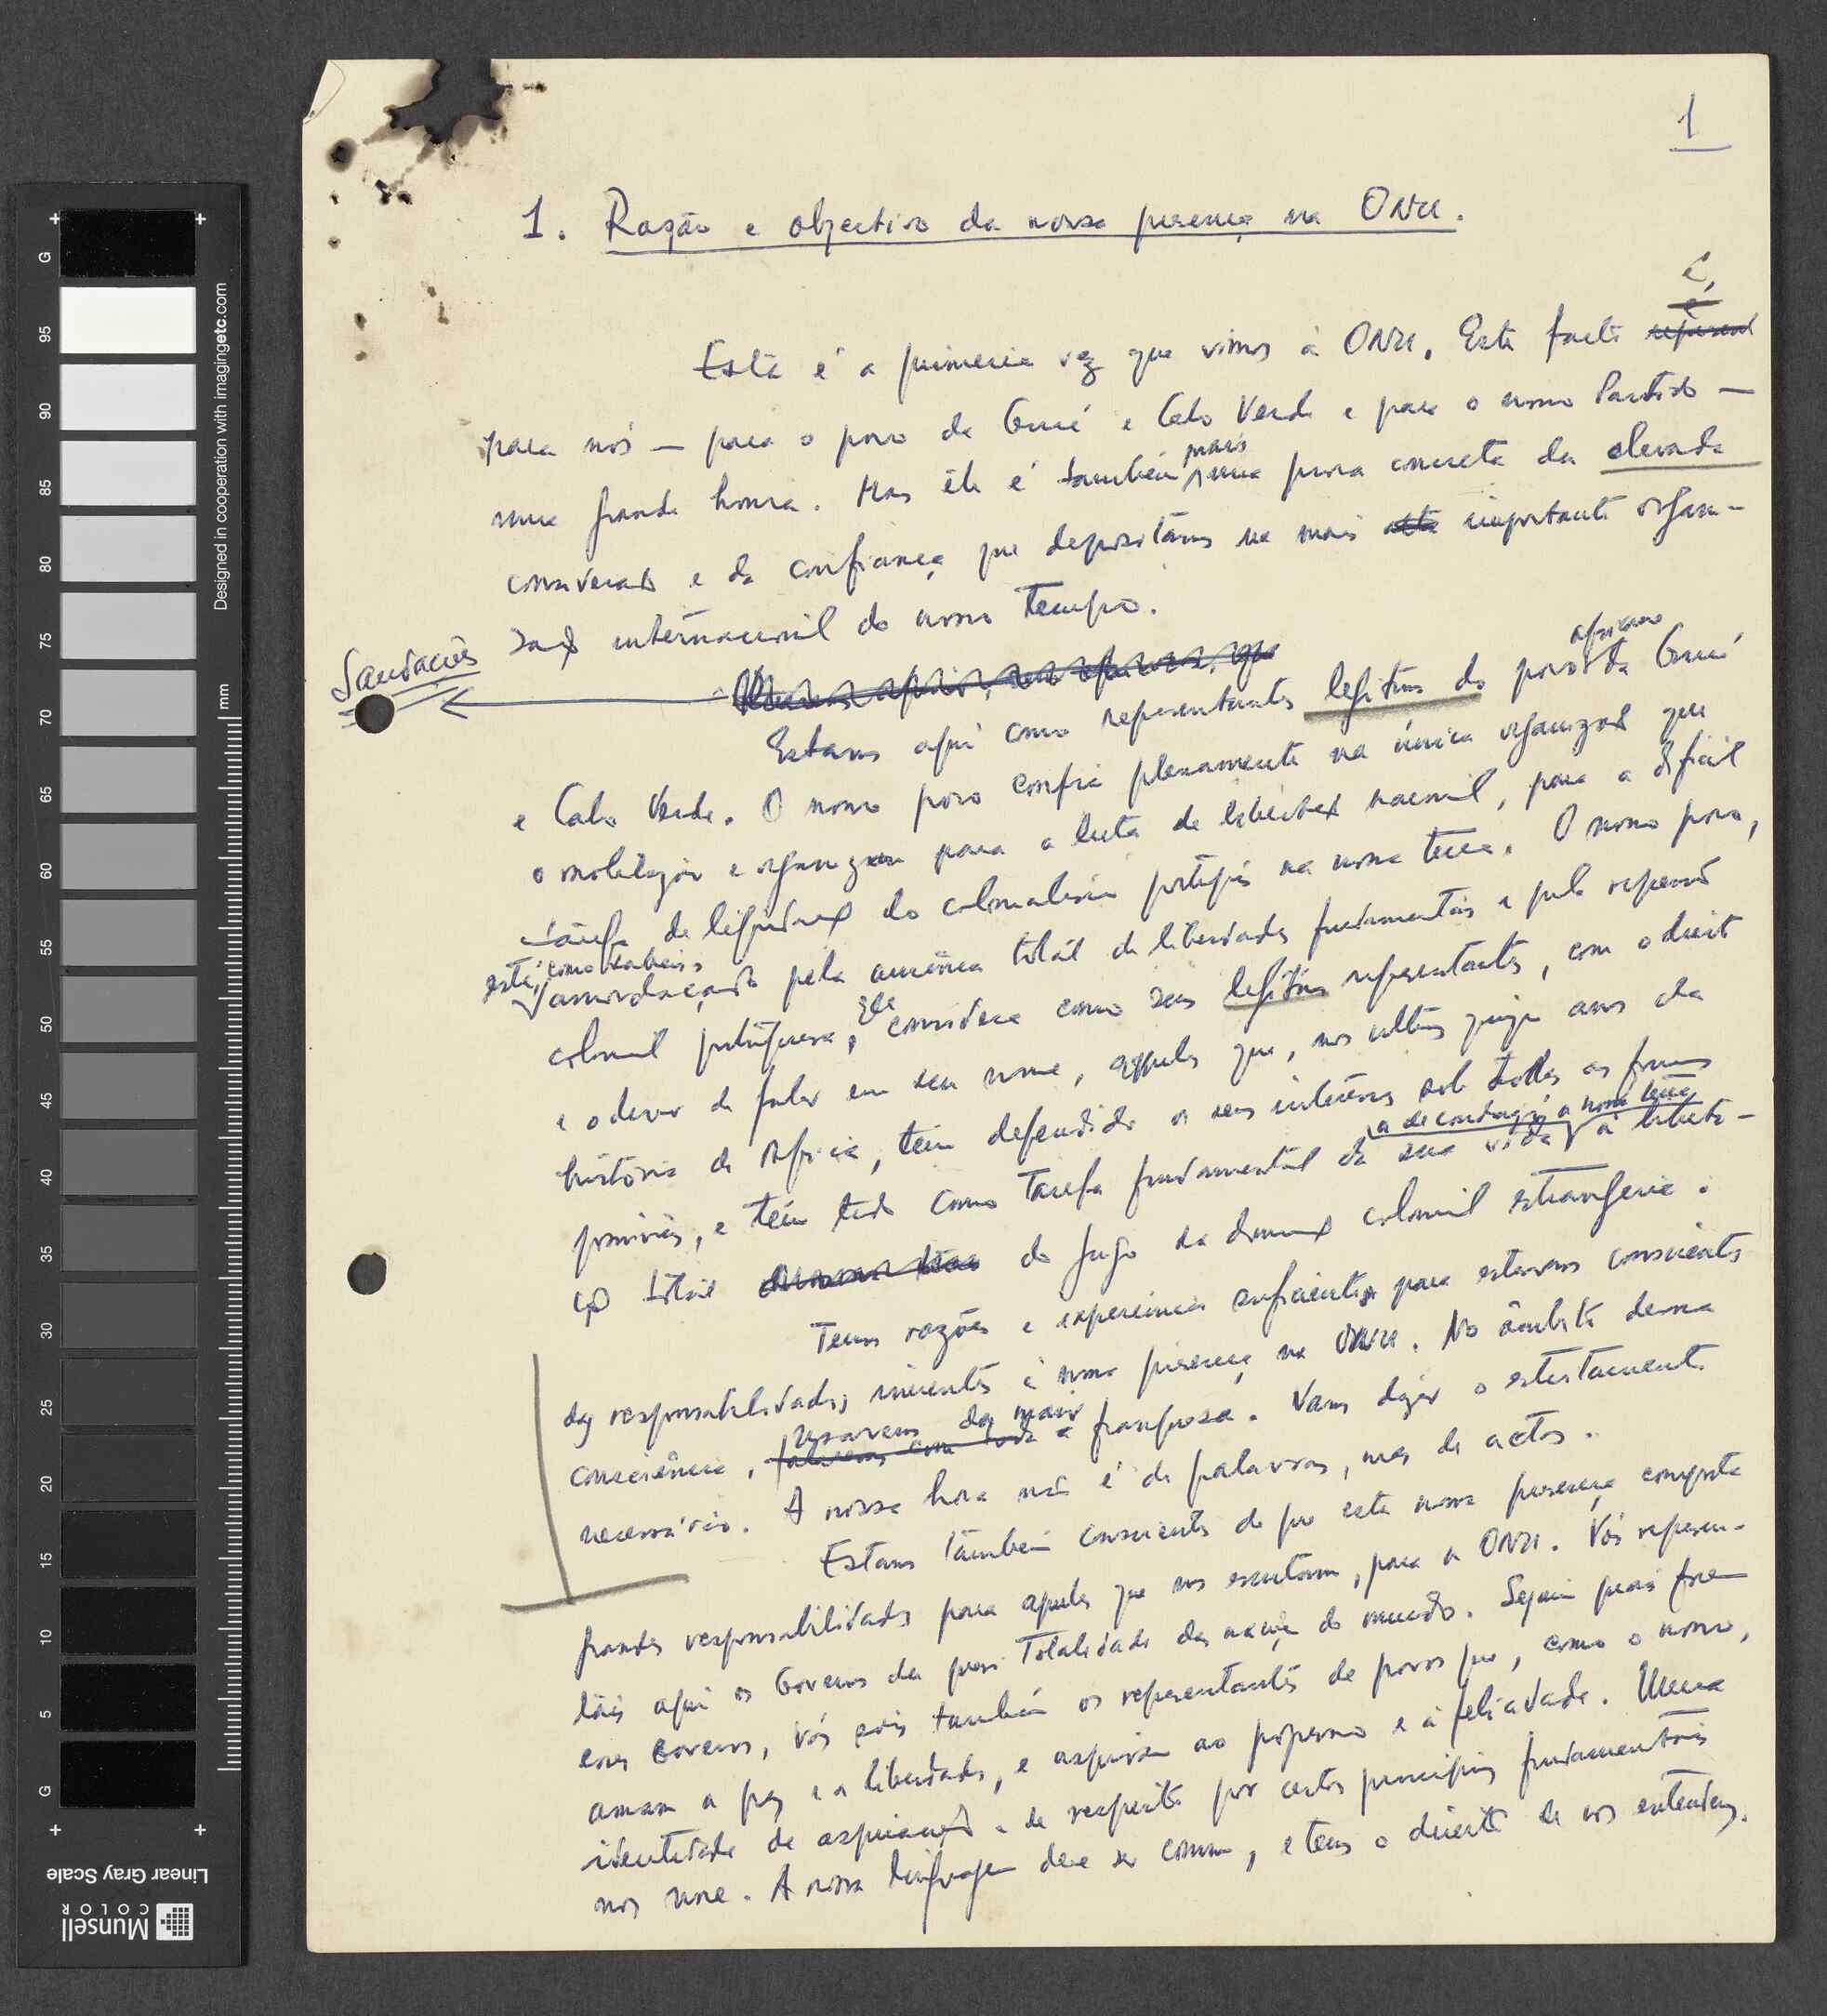 1
1. Razão e objectivo da nossa presença na ONU.
Esta é a primeira vez que vimos à ONU. Este facto é,
para nós — para o povo da Guiné e Cabo Verde e para o nosso Partido —
uma grande honra. Mas êle é também mais uma prova concreta da elevada
consideração e da confiança que depositamos na mais alta importante organi-
zação internacional do nosso tempo.
Saudações
Estamos aqui como representantes legítimos do povo africano da Guiné
e Cabo Verde. O nosso povo confia plenamente na única organização que
o mobilizou e organizou para a luta de libertação nacional, para a difícil
tarefa de liquidação do colonialismo português na nossa terra. O nosso povo,
está, como sabeis, amordaçado pela ausência total de liberdades fundamentais e pela repressão
colonial portuguesa, ele considera como seus legítimos representantes, com o direito
e o dever de falar em seu nome, aqueles que, nos últimos quinze anos da
história de África, têm defendido os seus interesses sob todas as formas
possíveis, e têm tido como tarefa fundamental da sua vida a de conduzir a nossa terra à liberta-
ção total do jugo da dominação colonial estrangeira.
Temos razões e experiência suficientes para estarmos conscientes
das responsabilidades inerentes à nossa presença na ONU. No âmbito dessa
consciência, usaremos da maior franqueza. Vamos dizer o estritamente
necessário. A nossa hora não é de palavras, mas de actos.
Estamos também conscientes de que esta nossa presença comporta
grandes responsabilidades para aqueles que nos escutam, para a ONU. Vós represen-
tais aqui os Governos da quasi totalidade das nações do mundo. Sejam quais forem
esses Governos, vós sois também os representantes de povos que, como o nosso,
amam a paz e a liberdade, e aspiram ao progresso e à felicidade. Uma
identidade de aspirações e de respeito por certos princípios fundamentais
nos une. A nossa linguagem deve ser comum, e temos o direito de nos entendermos.
Designed in cooperation with imagingetc.com
mm
G
95
90
85
80
75
70
65
60
55
50
45
40
35
30
25
20
15
10
5
G
Linear Gray Scale
Munsell
COLOR